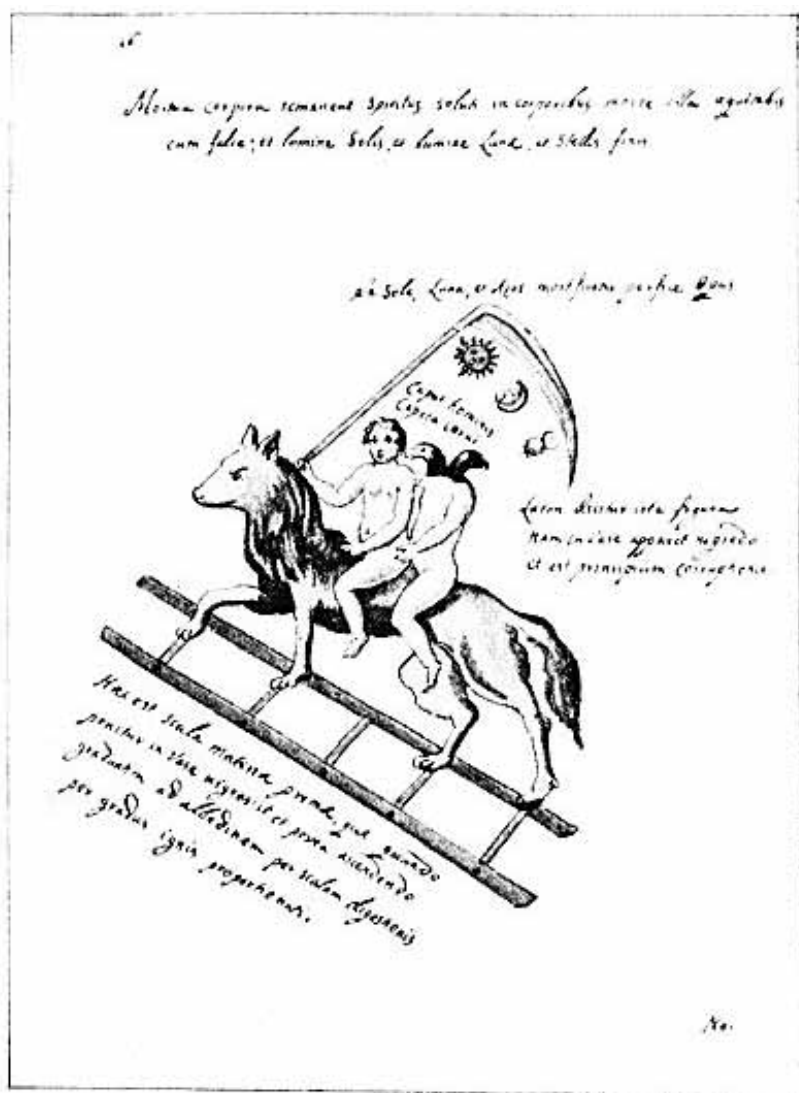 Mortua corpora remanent spiritus soluti in corporibus morte illa equitabis
cum falce; et lumine Solis, et lumine Lunæ, et Stellis fixis
Sole, Luna, et mortificatis perfice Opus
Caput hominis
Capita corui
Laton dicitur ista figura
nam in vase apparet nigredo
et est principium corruptionis
Hæc est scala materiæ primæ, quæ quando
ponitur in vase nigrescit et postea ascendendo
gradatim ad albedinem per scalam digestionis
per gradus ignis proportionati.